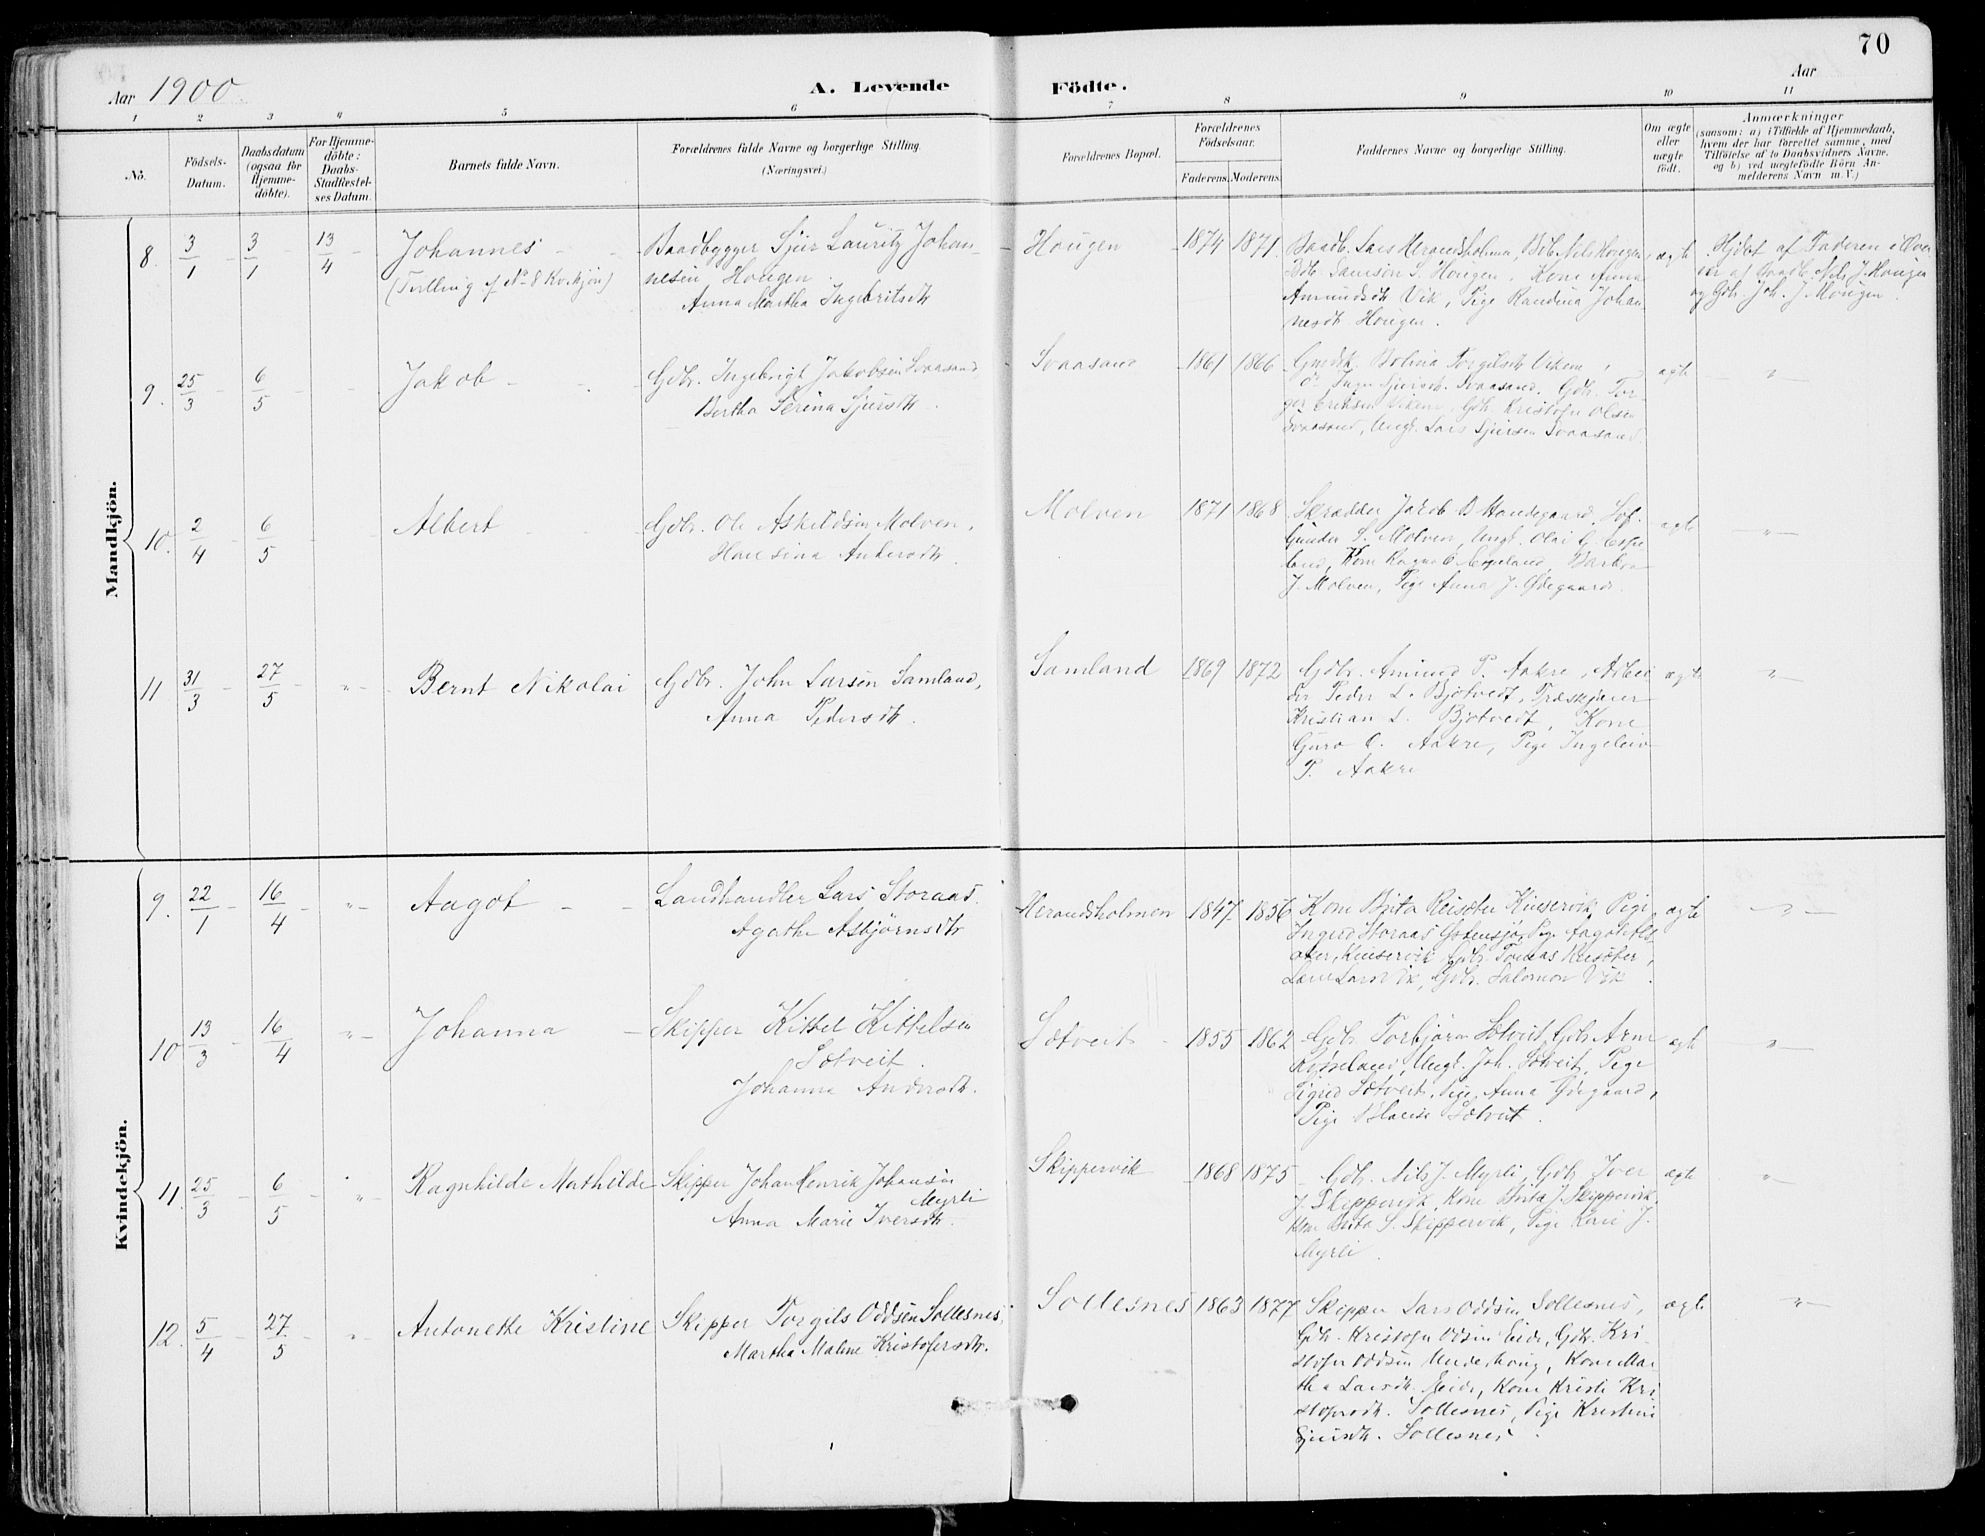 70
Aar 1900. A. Levende Födte. Aar
1 2 3 4 5 6 7 8 9 10 11
No.
Födsels-
Datum.
Daabsdatum
(ogsaa for
Hjemme-
döbte).
For Hjemme-
döbte:
Daabs-
Stadfæstel-
ses Datum.
Barnets fulde Navn.
Forældrenes fulde Navne og borgerlige Stilling.
(Næringsvei.)
Forældrenes Bopæl.
Forældrenes
Födselsaar.
Faderens. Moderens.
Faddernes Navne og borgerlige Stilling.
Om ægte
eller
uægte
födt.
Anmærkninger
(saasom: a) i Tilfælde af Hjemmedaab,
hvem der har forrettet samme, med
Tilföielse af to Daabsvidners Navne.
og b) ved uægtefödte Börn An-
melderens Navn m. V.)
Mandkjön.
8. 3/1 3/1 13/4
Johannes
(Tvilling af No 8 Kv.kjøn)
Baadbygger Sjur Lauritz Johan-
nesen Hougen.
Anna Martha Ingebritsdtr
Hougen 1874 1871.
Baadb. Lars Herandsholmen, Bdb. Nils Hougen,
Bdb. Samson S. Hougen, Kone Anna
Amundsdtr Vik, Pige Randina Johan-
nesdtr. Hougen.
ægte
Hjdøbt af Faderen i Overvær
af Baadb. Nils J. Hougen
og Gdbr. Joh. J. Hougen.
9. 25/3 6/5
Jakob
Gdbr. Ingebrigt Jakobsen Svaasand
Bertha Serina Sjursdtr.
Svaasand 1861 1866
Torgilsdtr Vikene,
Sjursdtr. Svaasand, Gdbr. Tor-
ger Eriksen Vikene, Gdbr. Kristofer Olsen
Svaasand, Ungk. Lars Sjursen Svaasand.
ægte "
10. 2/4 6/5
Albert
Gdbr. Ole Askildsen Molven,
Hansina Andersdtr.
Molven 1871 1868
Skrædder Jakob
Gunder S. Molven, Ungk. Olai G. Espe-
land, Kone Ragna O. Espeland, Barbra
J. Molven, Pige Anna J. Ødegaard.
ægte "
11 31/3 27/5 "
Bernt Nikolai
Gdbr. John Larsen Samland,
Anna Pedersdtr.
Samland 1869 1872
Gdbr. Amund P. Aakre, Arbei-
der Peder L. Bjotvedt, Træskjærer
Kristian L. Bjotvedt, Kone
Guro O. Aakre, Pige Ingeleiv
P. Aakre
ægte "
Kvindekjön.
9. 22/1 16/4 "
Aagot
Landhandler Lars Storaas.
Agathe Asbjørnsdtr
Herandsholmen 1847 1856
Kone Brita Reisæter Kinservik, Pige
Ingrid Storaas Pige Aagot
Kinservik, Gdbr. Tomas Reisæter,
Vik, Gdbr. Salomon Vik.
ægte "
10 13/3 16/4 "
Johanna
Skipper Kittel Kittelsen
Sætveit.
Johanna Andersdtr.
Sætveit 1855 1862
Gdbr. Torbjørn Sætveit, Gdbr. Arne
Røsseland, Ungk. Joh. Sætveit, Pige
Sigrid Sætveit, Pige Anna Ødegaard,
Pige Sætveit.
ægte "
11. 25/3 6/5 "
Ragnhilde Mathilde
Skipper Johan Henrik Johansen
Myrli
Anna Marie Iversdtr.
Skippervik 1868 1875
Gdbr. Nils J. Myrli, Gdbr. Iver
J. Skippervik, Kone Brita J. Skippervik,
Kone Brita S. Skippervik, Pige Kari J.
Myrli.
ægte "
12. 5/4 27/5 "
Antonette Kristine
Skipper Torgils Oddsen Sollesnes,
Martha Maline Kristofersdtr.
Sollesnes 1863 1877
Skipper Lars Oddsen Sollesnes,
Gdbr. Kristofer Oddsen Eide, Gdbr. Kri-
stofer Oddsen Underhoug, Kone Mar-
tha Larsdtr. Eide, Kone Kristi Kri-
stofersdtr. Sollesnes, Pige Kristine
Sjursdtr. Sollesnes.
ægte "